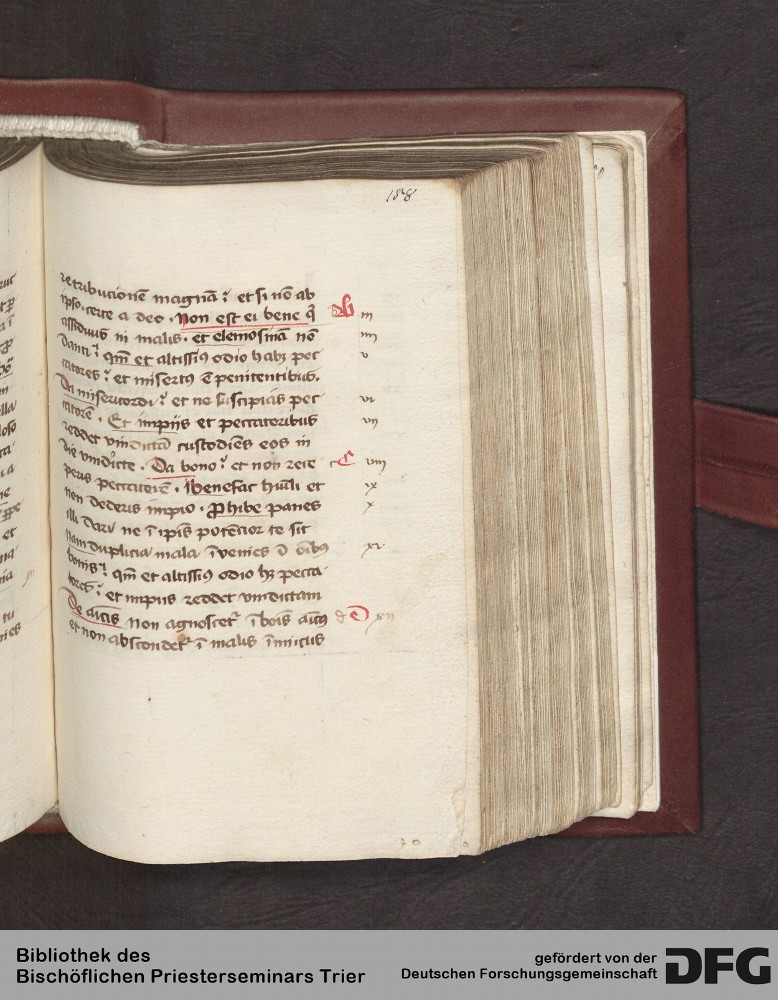 188
retribucionē magnā : et si nō ab
ipso certe a deo . Non est ei bene q̄ b iii
assiduus in malis . et elemosinā nō iiii
danti : qm̄ et altissimꝰ odio habꝫ pec v
catores : et misertꝰ ē penitentibus .
Da misericordi : et ne suscipias pec vi
catorē . Et impijs et peccatoribus vii
reddet vindictā custodiēs eos in
die vindicte . Da bono : et non rece c viii
peris peccatorem . Benefac hūili et ix
non dederis impio . Prohibe panes x
illi dari ne ī ipīs potēcior te sit
nam duplicia mala īvenies ī oībꝰ xi
bonis : qm̄ et altissimꝰ odio hꝫ pecca
tores : et impijs reddet vindictam
De amicis Non agnoscetur ī bois amicꝰ d xii
et non abscondetur ī malis inimicus
Bibliothek des
Bischöflichen Priesterseminars Trier
gefördert von der
Deutschen Forschungsgemeinschaft
DFG